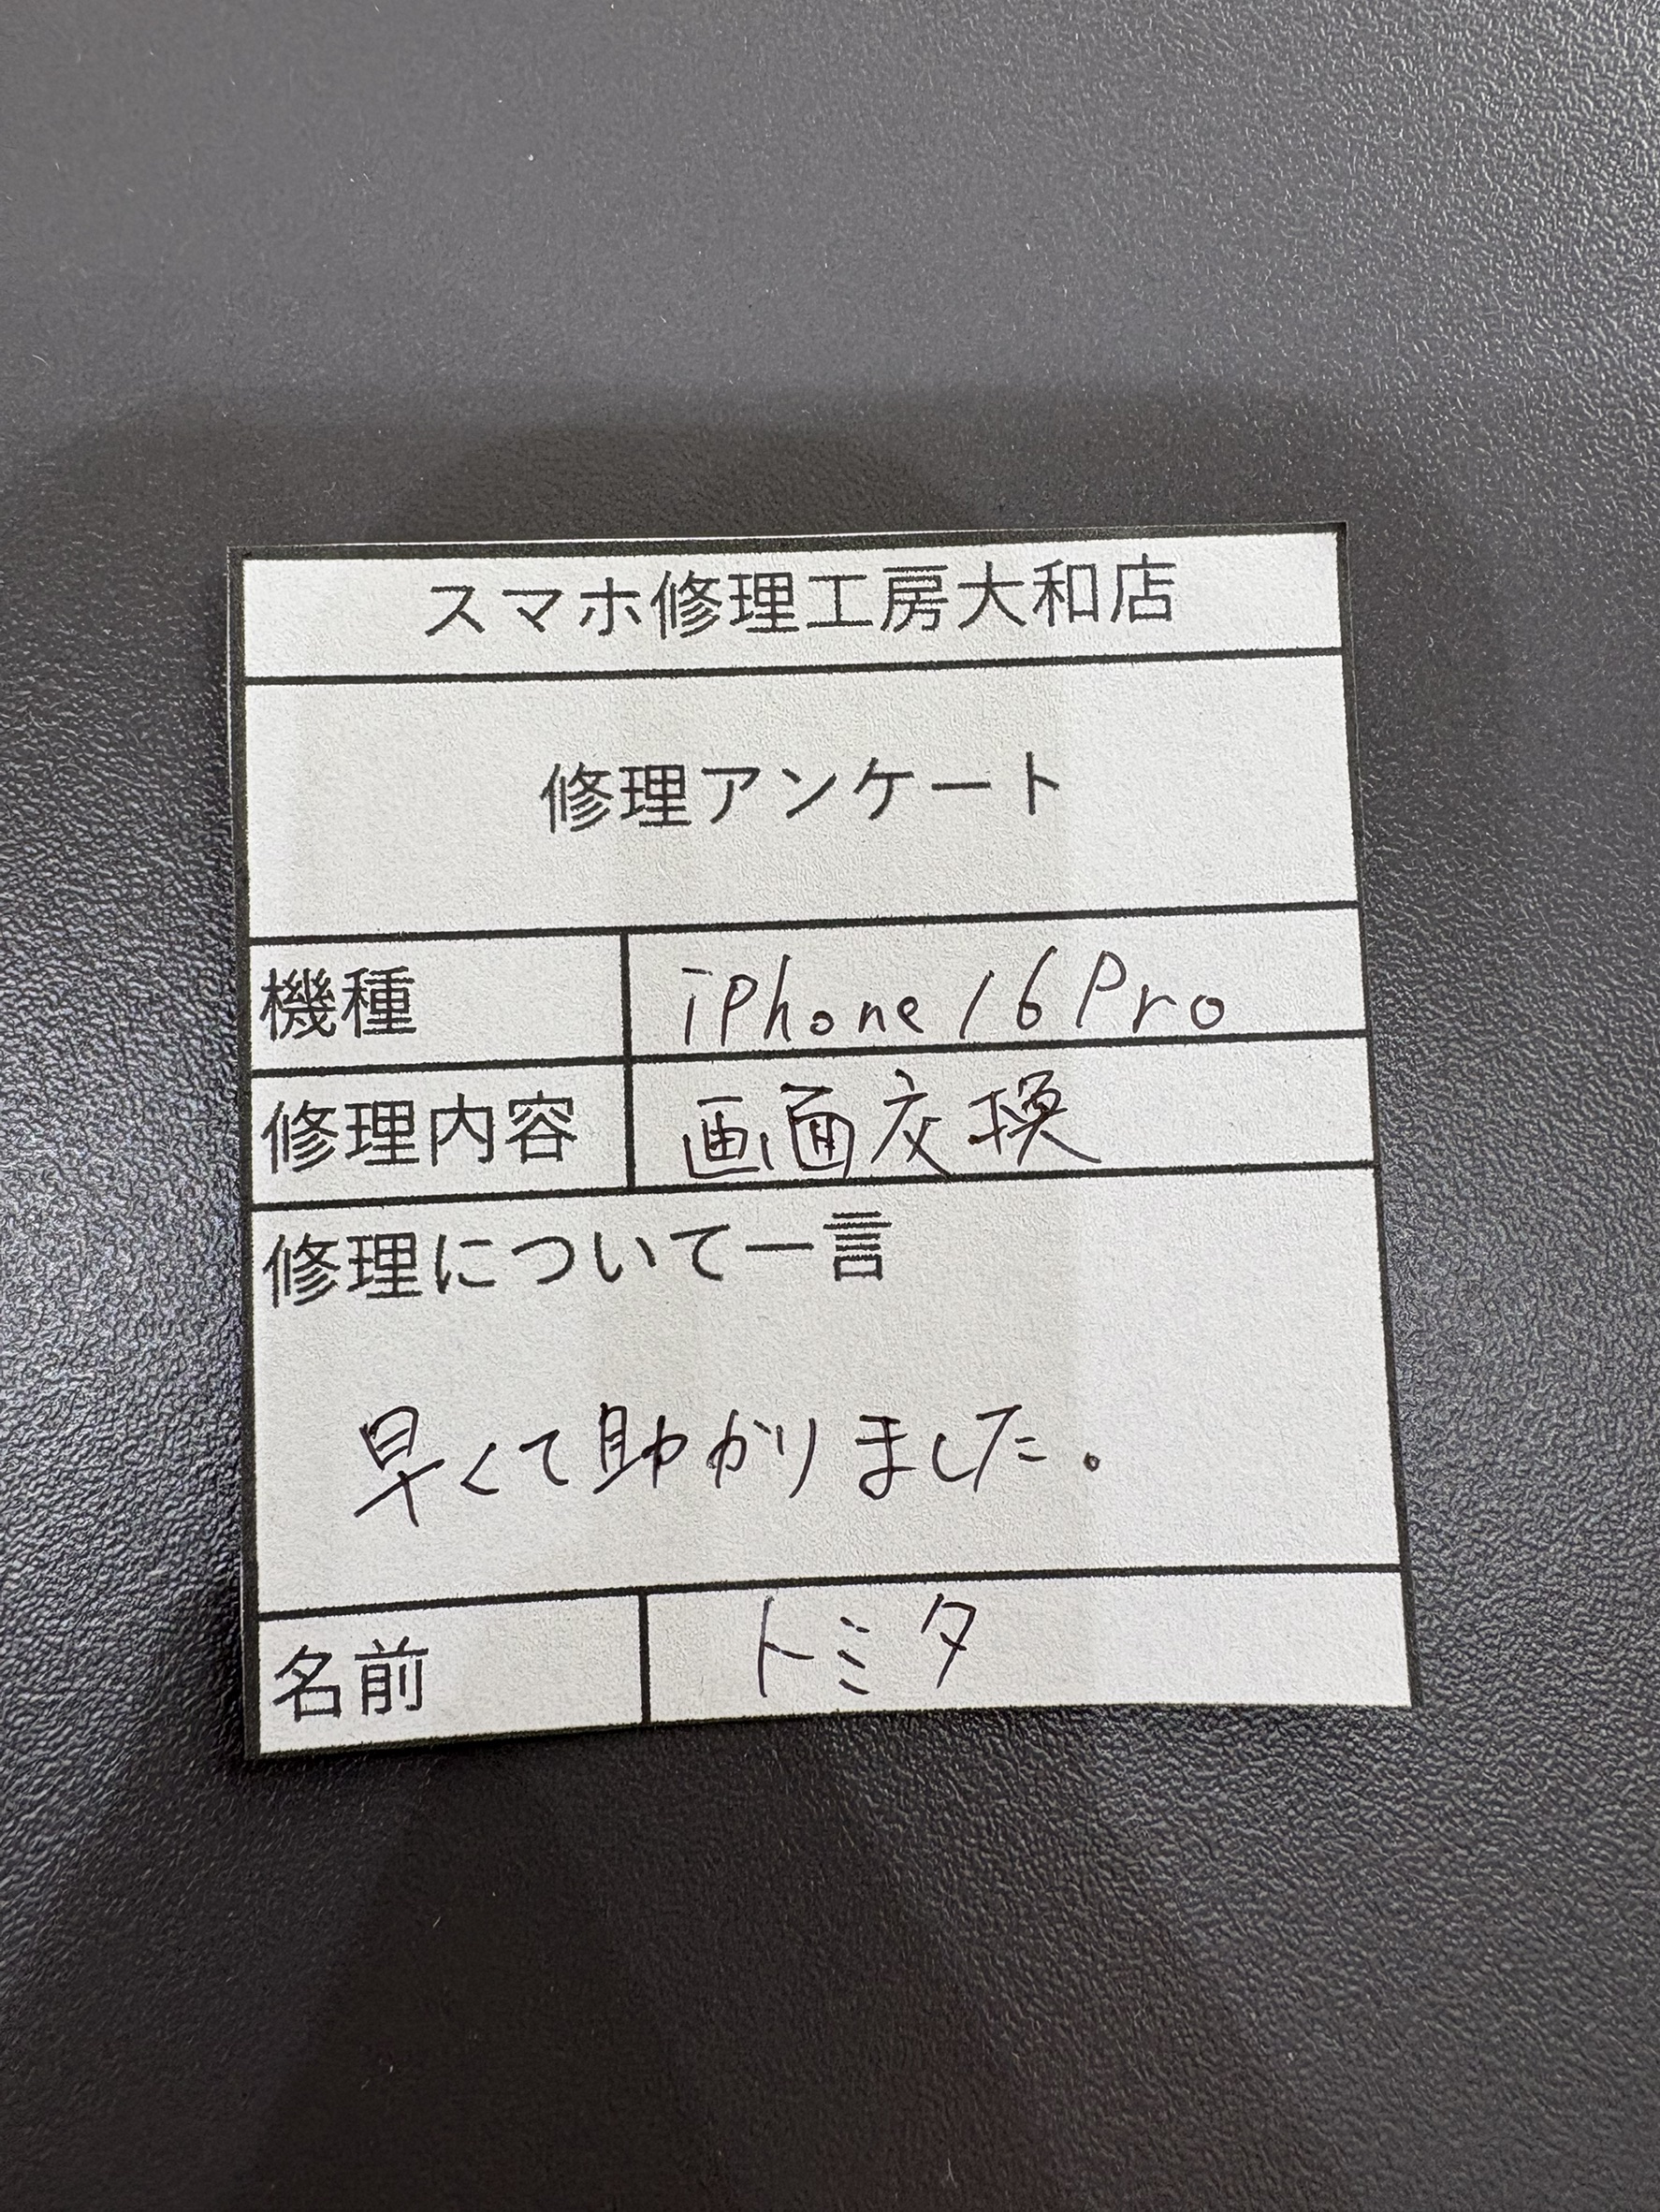 スマホ修理工房大和店
修理アンケート
機種 iPhone16Pro
修理内容 画面交換
修理について一言
早くて助かりました.
名前 トミタ